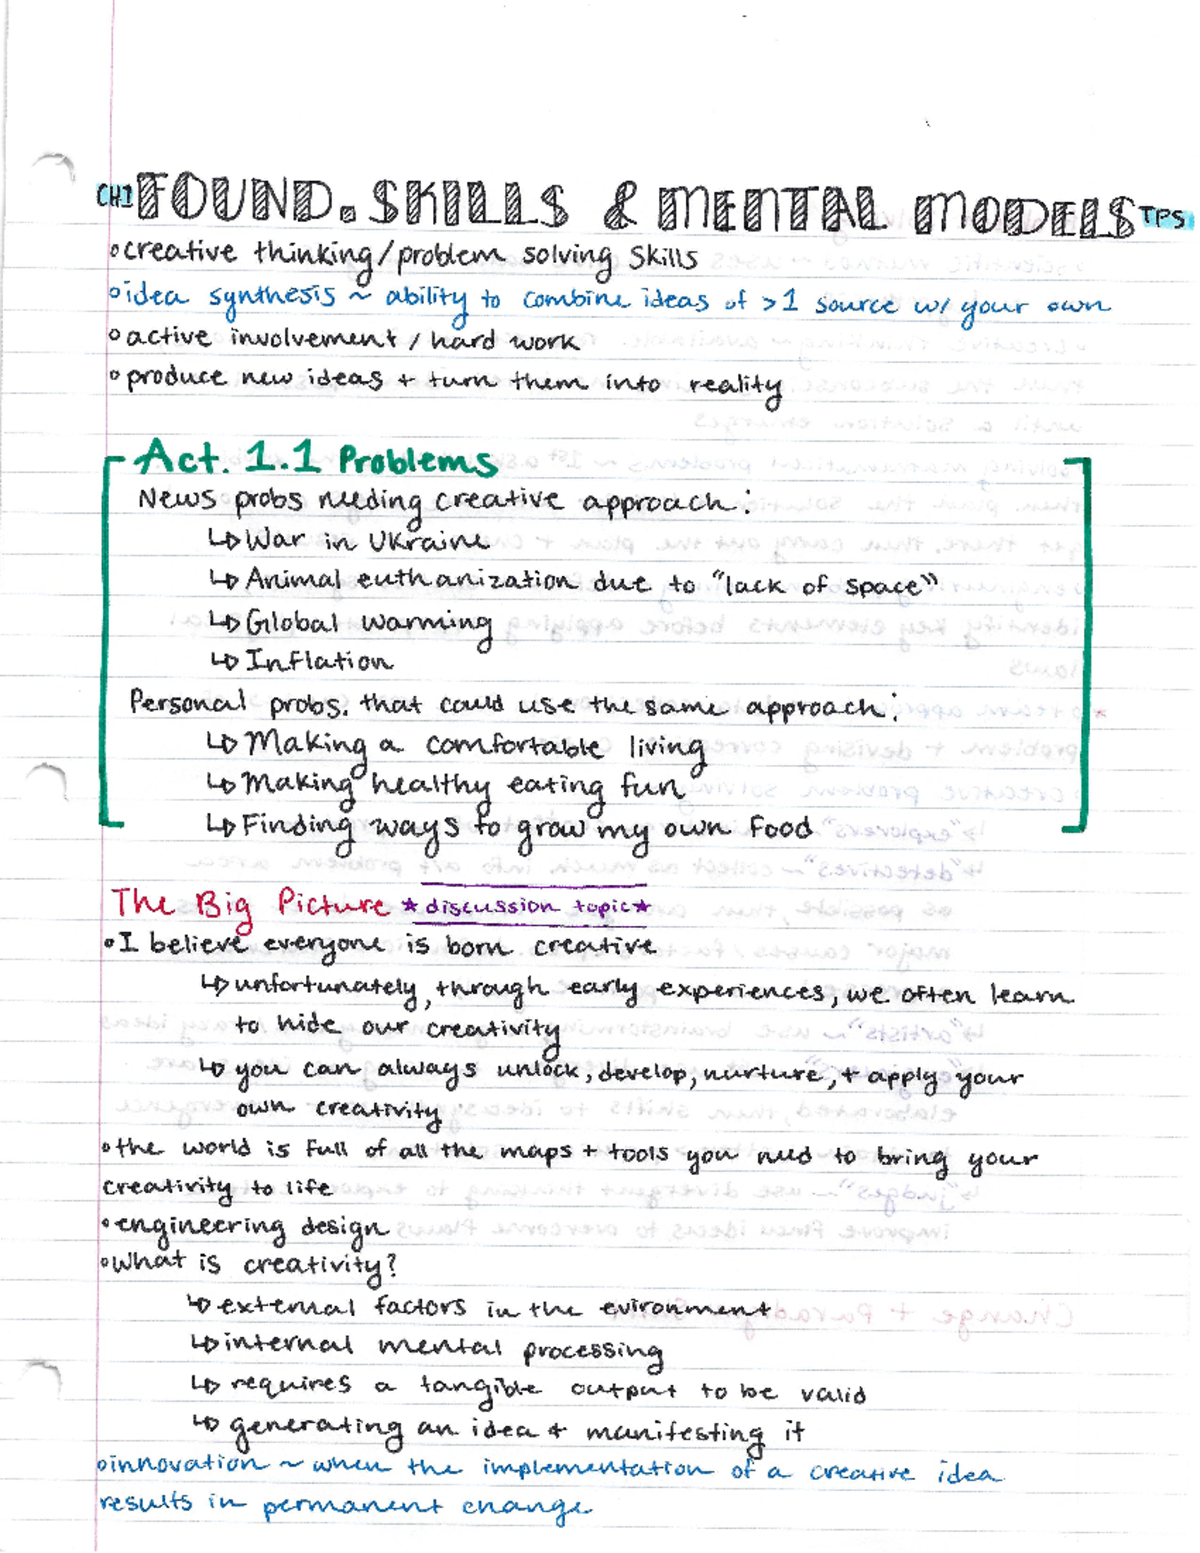 CH1 FOUND. SKILLS & MENTAL MODELS TPS
◦creative thinking/problem solving skills
◦idea synthesis ~ ability to combine ideas of >1 source w/ your own
◦active involvement / hard work
◦produce new ideas + turn them into reality
Act. 1.1 Problems
News probs needing creative approach:
↳War in Ukraine
↳Animal euthanization due to "lack of space"
↳Global warming
↳Inflation
Personal probs. that could use the same approach:
↳Making a comfortable living
↳Making healthy eating fun
↳Finding ways to grow my own food
The Big Picture ★discussion topic★
•I believe everyone is born creative
↳unfortunately, through early experiences, we often learn
to hide our creativity
↳you can always unlock, develop, nurture, + apply your
own creativity
•the world is full of all the maps + tools you need to bring your
creativity to life
•engineering design
•What is creativity?
↳external factors in the evironment
↳internal mental processing
↳requires a tangible output to be valid
↳generating an idea + manifesting it
◦innovation ~ when the implementation of a creative idea
results in permanent change